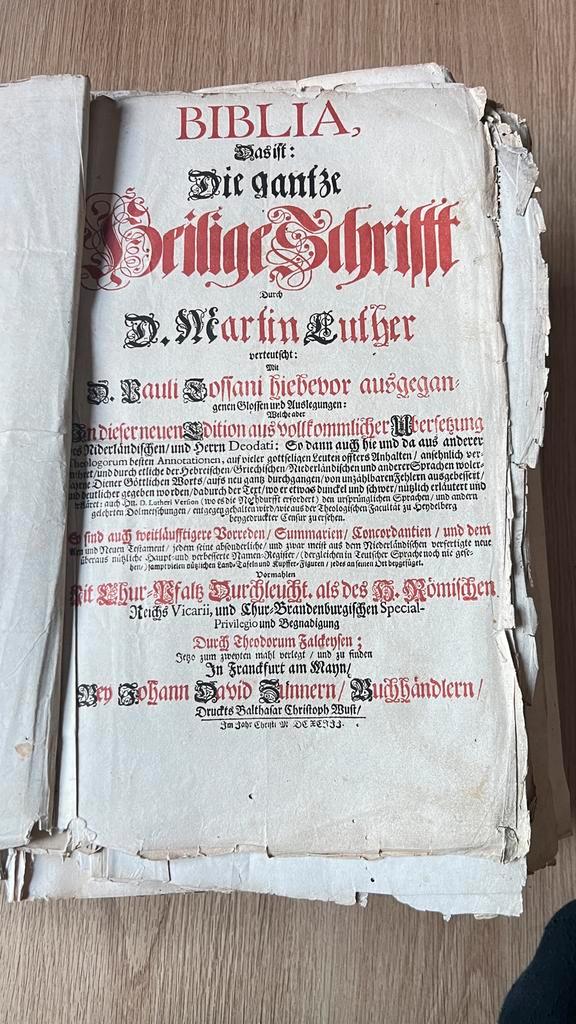 BIBLIA,
Das ist:
Die gantze
Heilige Schrifft
Durch
D. Martin Luther
verteutscht:
Mit
D. Pauli Tossani hiebevor ausgegan-
genen Glossen und Auslegungen:
Welche aber
In dieser neuen Edition aus vollkommlicher Ubersetzung
des Niderländischen, und Herrn Deodati: So dann auch hie und da aus anderer
Theologorum besten Annotationen, auf vieler gottseligen Leuten öffters Anhalten / ansehnlich ver-
mehret / und durch etliche der Hebreischen / Griechischen / Niederländischen und anderer Sprachen woler-
fahrne Diener Göttlichen Worts / aufs neu gantz durchgangen / von unzählbaren Fehlern ausgebessert /
und deutlicher gegeben worden / dadurch der Text / wo er etwas dunckel und schwer / nützlich erläutert und
erkläret: auch Hn. D. Lutheri Version (wo es die Nohtdurfft erfordert) den ursprünglichen Sprachen / und andern
gelehrten Dolmetschungen / entgegen gehalten wird / wie aus der Theologischen Facultät zu Heydelberg
beygedruckter Censur zu ersehen.
Es sind auch weitläufftigere Vorreden / Summarien / Concordantien / und dem
Alten und Neuen Testament / jedem seine absonderliche / und zwar meist aus dem Niederländischen verfertigte neue
überaus nützliche Haupt- und verbesserte Namen-Register / (dergleichen in Teutscher Sprache noch nie gese-
hen / sampt vielen nützlichen Land-Tafeln und Kupffer-Figuren / jedes an seinen Ort beygefüget.
Vormahlen
Mit Chur-Pfaltz Durchleucht. als des H. Römischen
Reichs Vicarii, und Chur-Brandenburgischen Special-
Privilegio und Begnadigung
Durch Theodorum Falckeysen;
Jetzo zum zweyten mahl verlegt / und zu finden
In Franckfurt am Mayn /
Bey Johann David Zunnern / Buchhändlern /
Druckts Balthasar Christoph Wust /
Im Jahr Christi M DC XCIII.